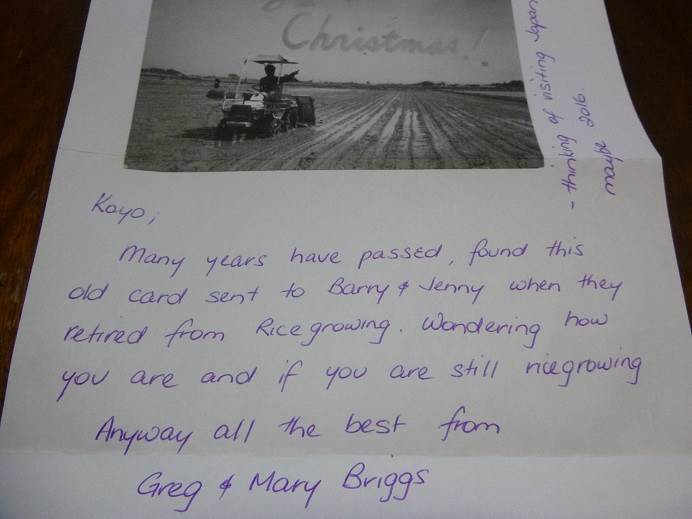 Christmas!
- thinking of visiting Japan
maybe 2016.
Koyo,
Many years have passed, found this
old card sent to Barry & Jenny when they
retired from Ricegrowing. Wondering how
you are and if you are still ricegrowing
Anyway all the best from
Greg & Mary Briggs